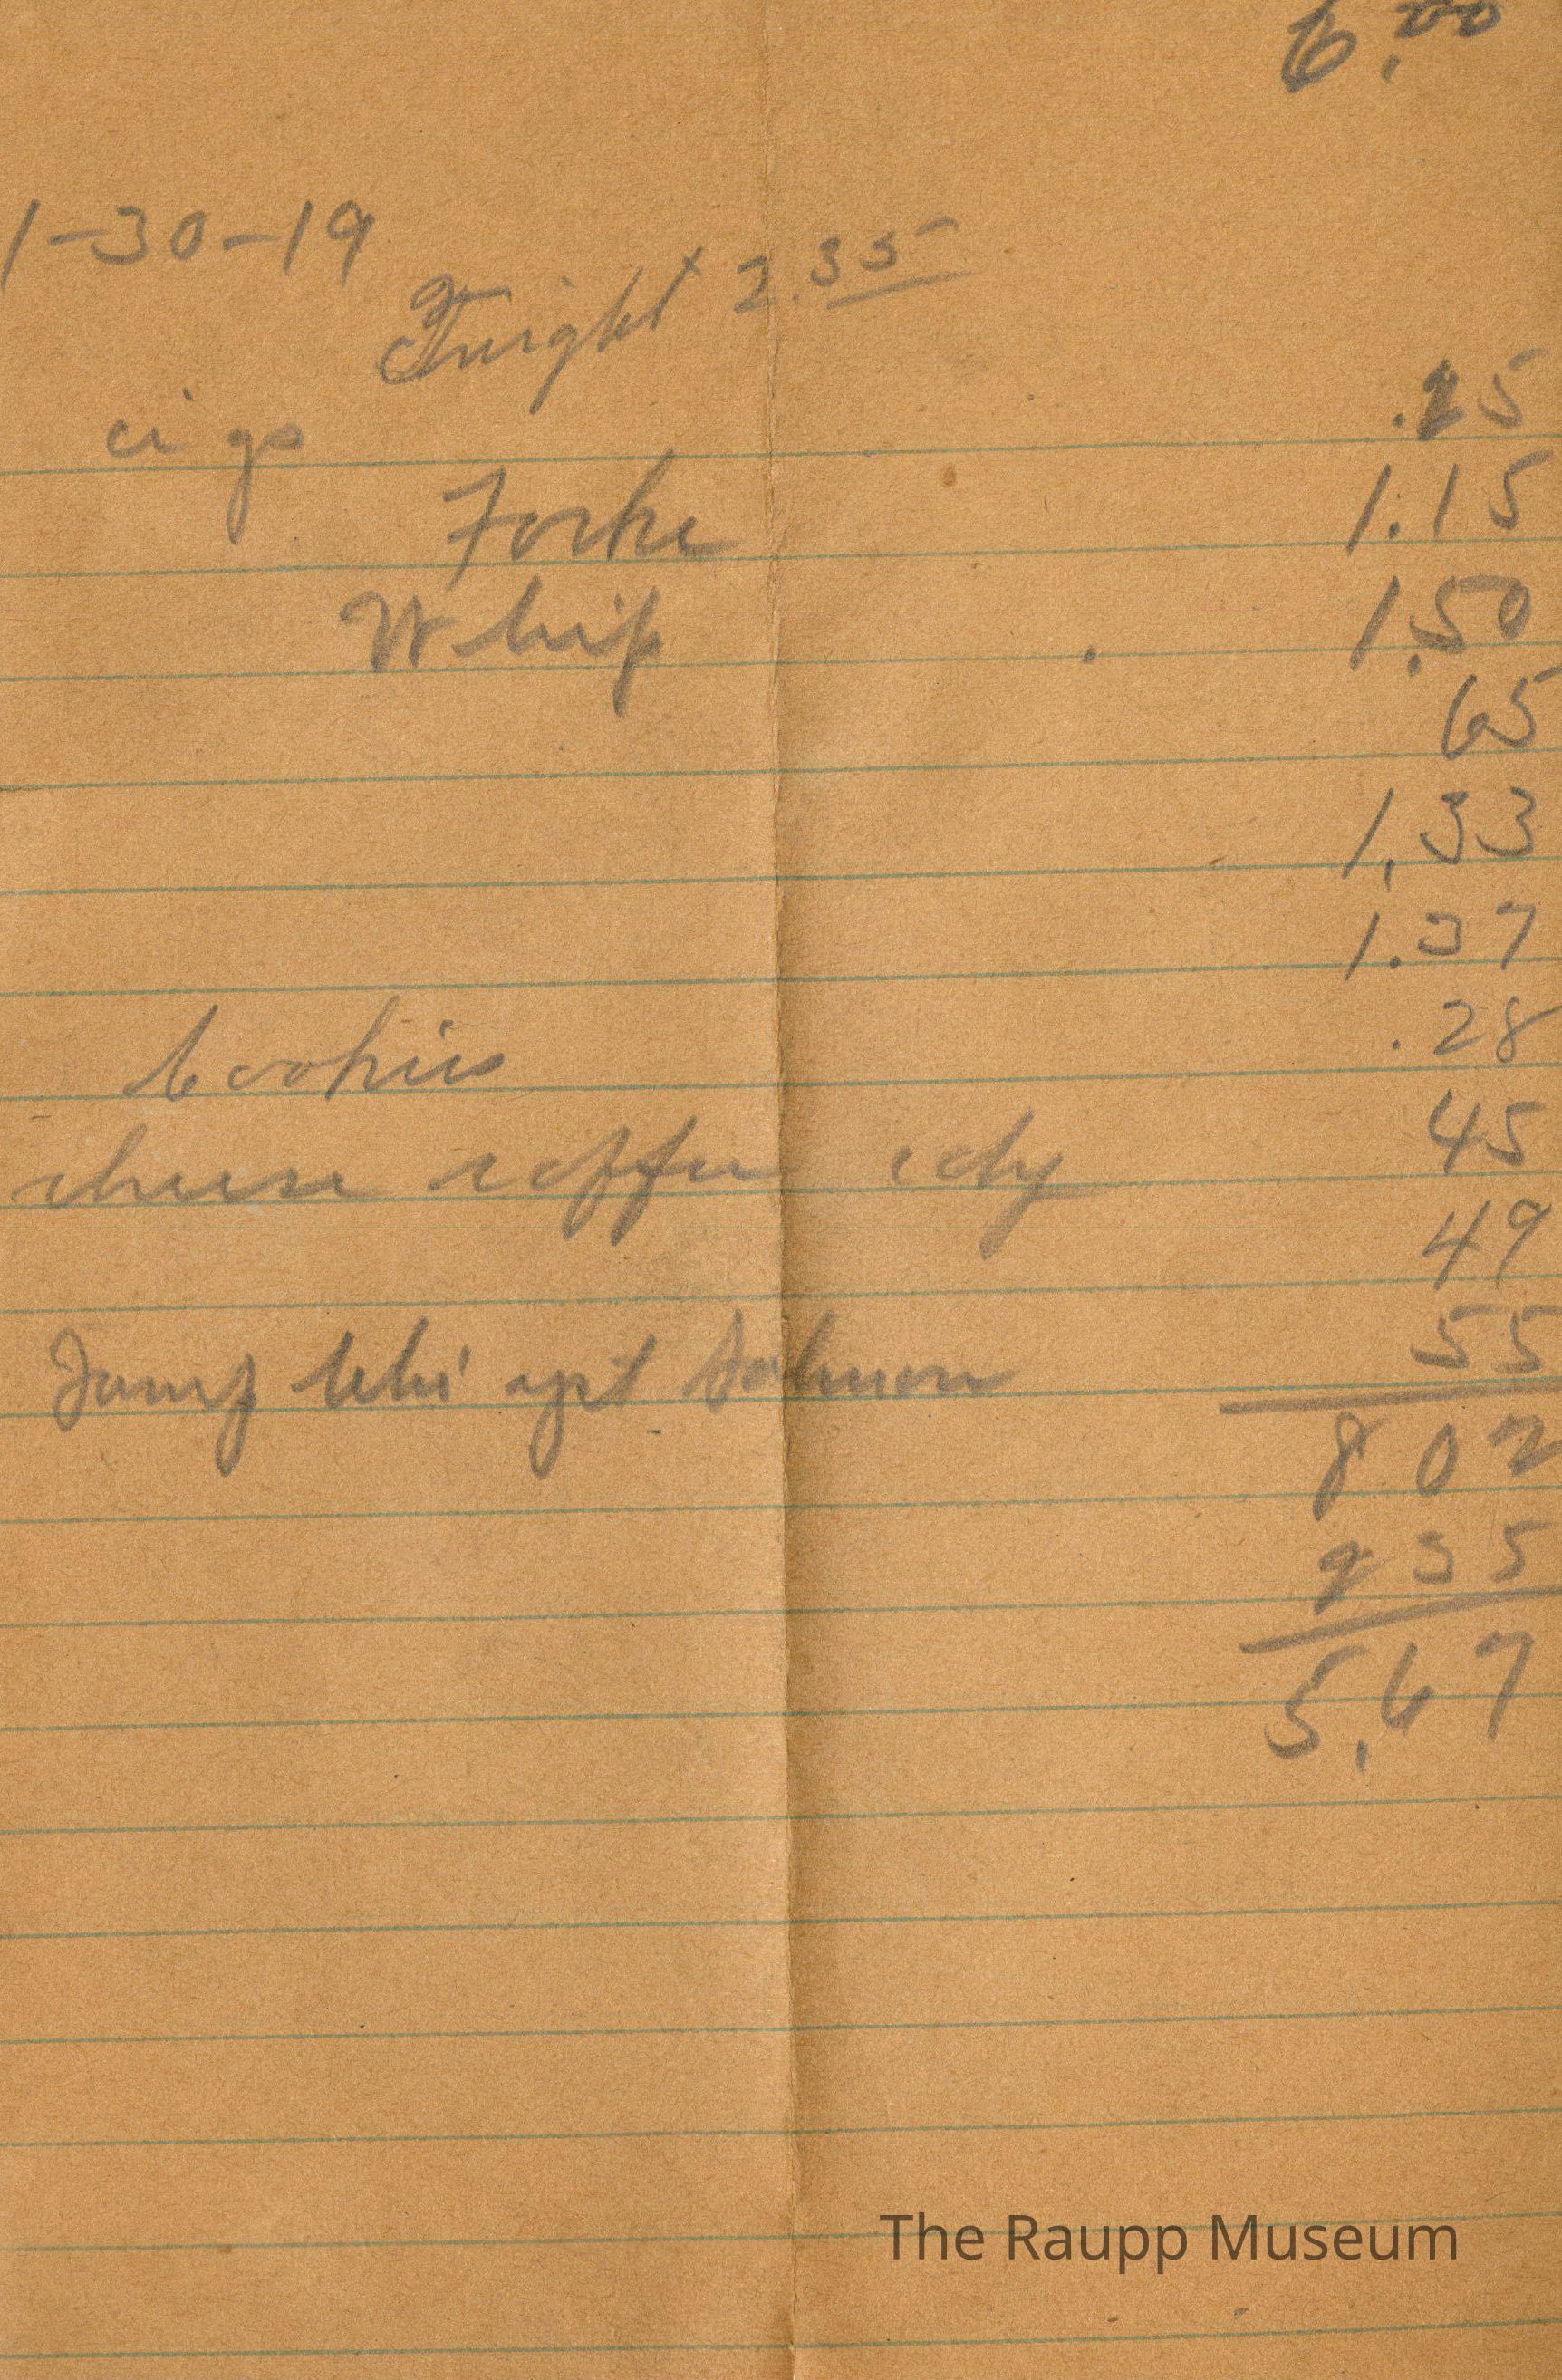 6.00
1-30-19
Freight 2.35
.25
cigs
1.15
Forke
Whip 1.50
65
1.33
1.37
cookies .28
cheese coffee cdy 45
49
salmon 55
8 02
2 35
5.67
The Raupp Museum